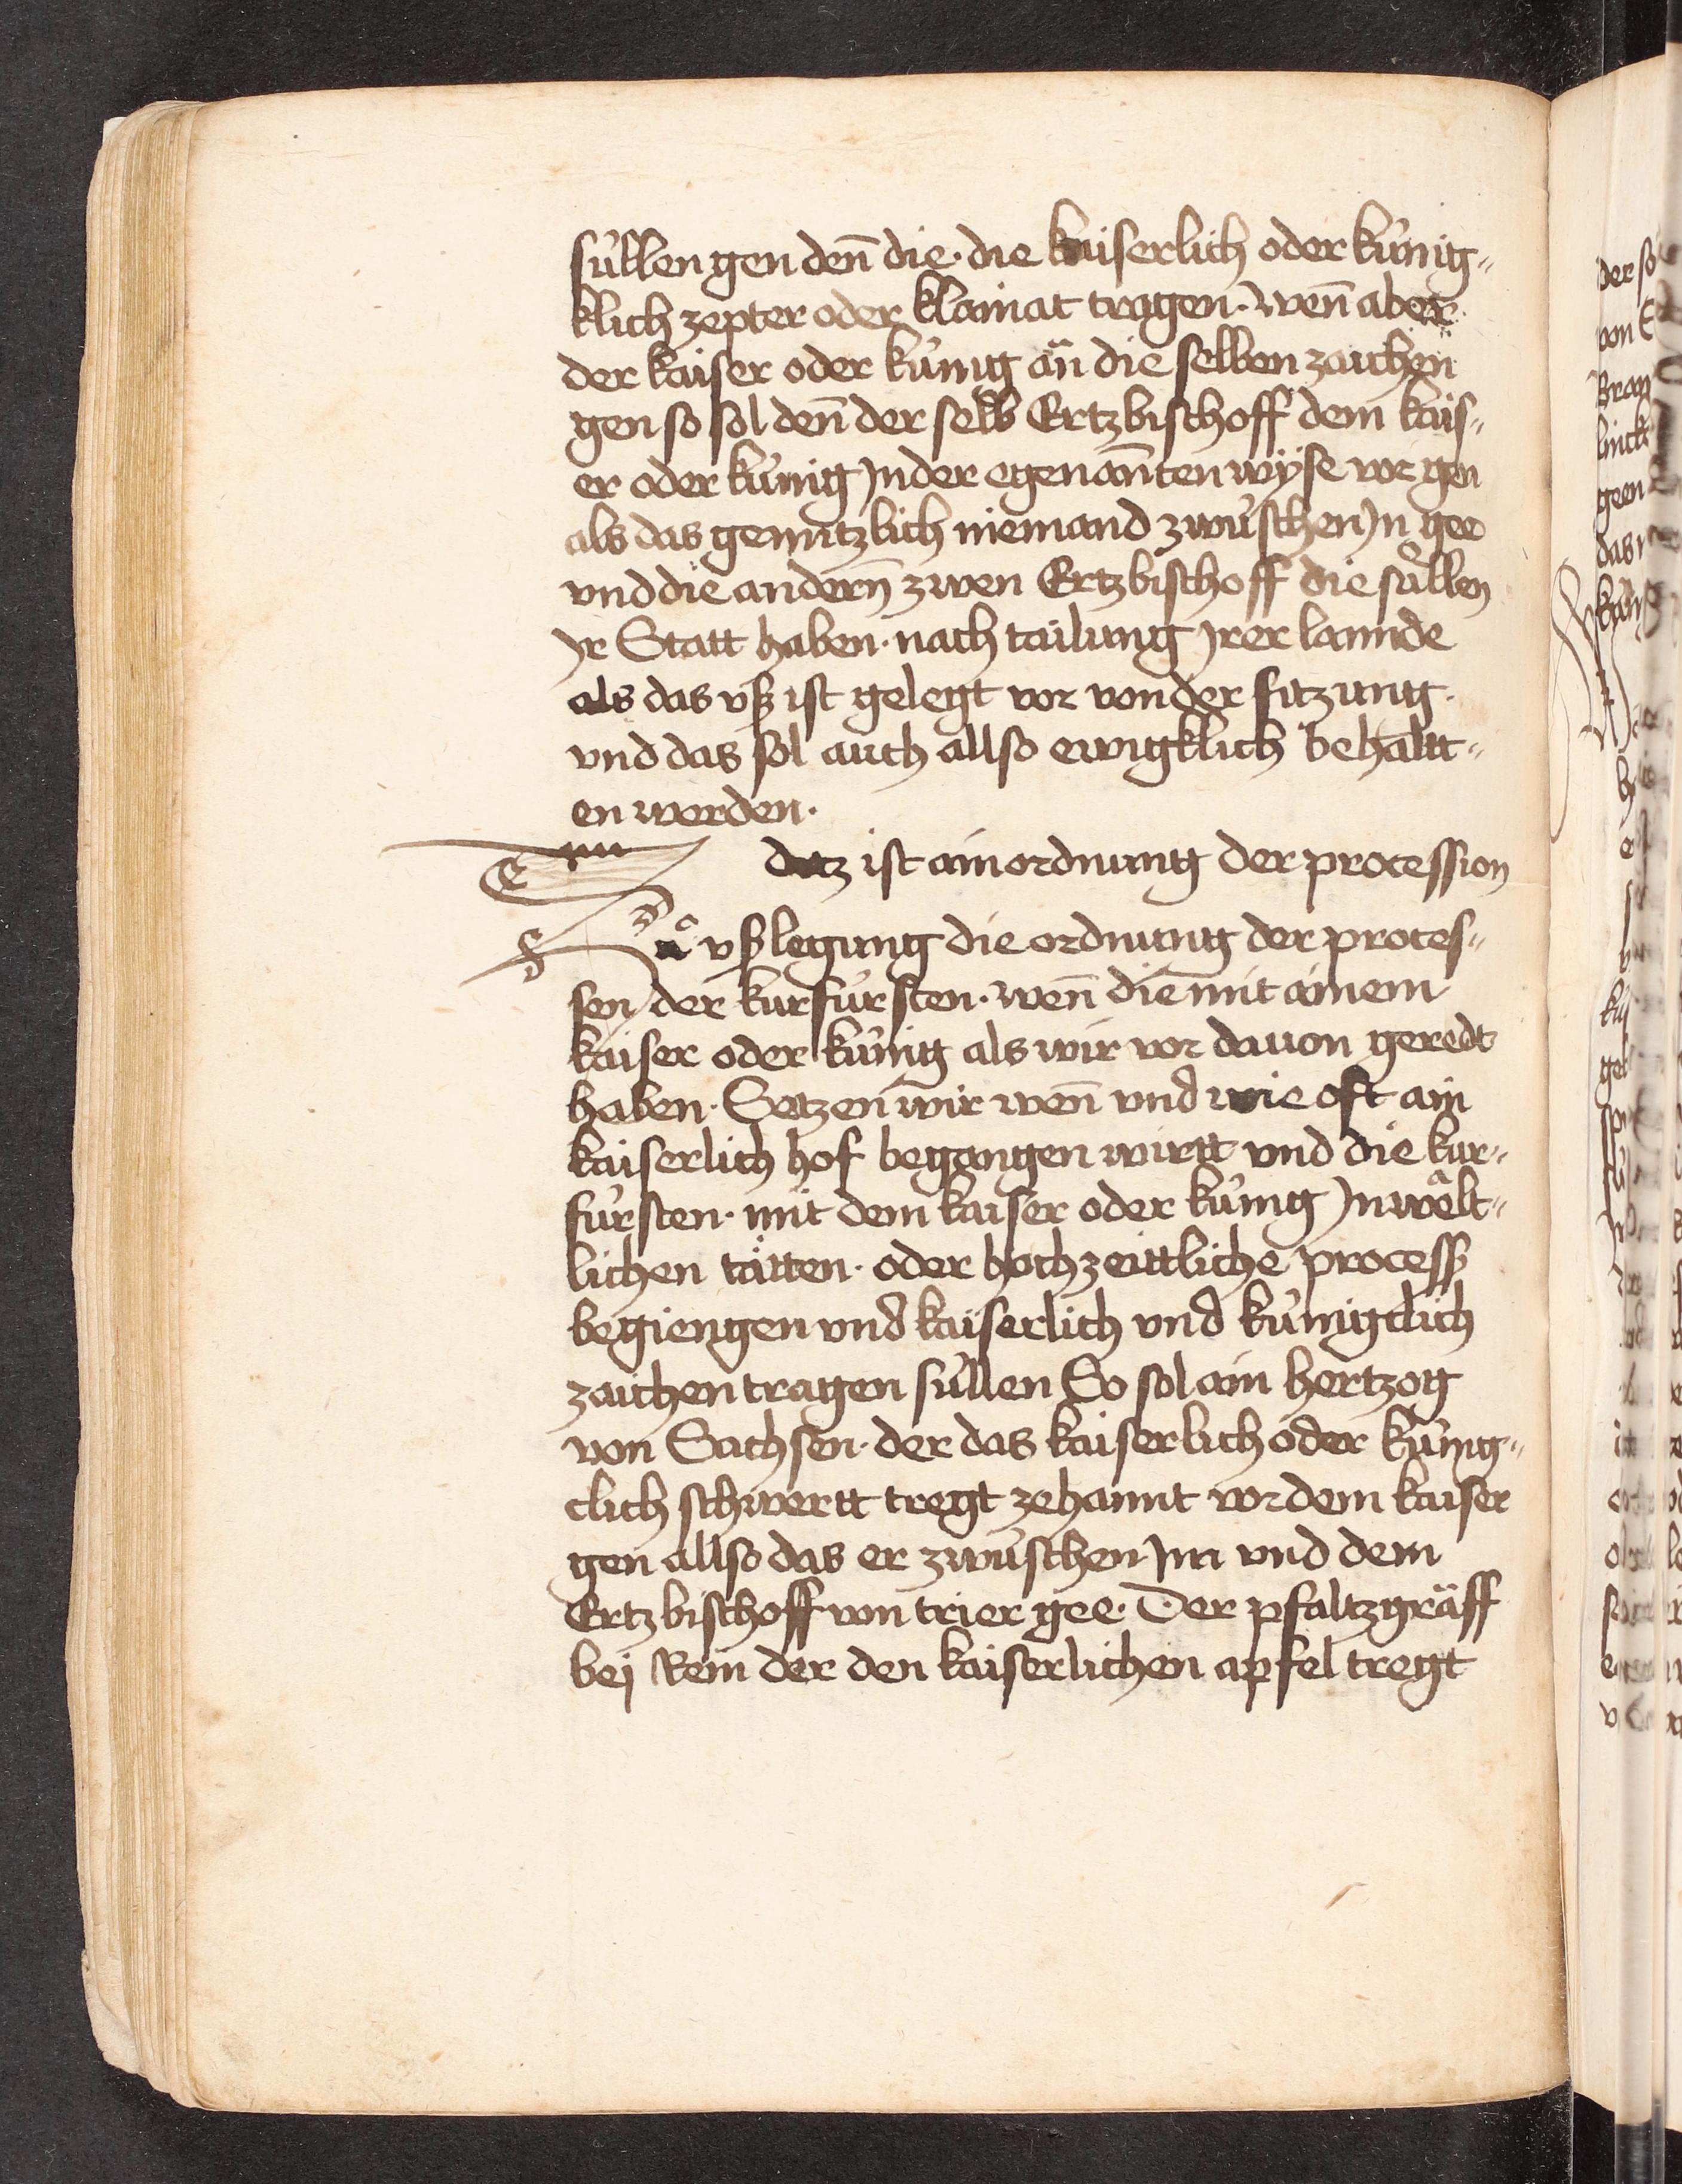 süllen gen den̄ die · die kaiserlich oder künig„
klich zepter oder klainat tragen · wen̄ aber
der kaiser oder künig än die selben zaichen
gen so sol den̄ der selb Ertzbischoff dem kais„
er oder künig Jn der egenan̄ten wÿse vor gen
als das genntzlich niemand zwüschen Jn gee
vnd die andern̄ zwen Ertzbischoff die süllen
Jr Statt haben · nach tailung Jrer lannde
als das vß ist gelegt vor von der sitzung ·
vnd das sol auch allso ewigklich behaltt„
en werden ·
datz ist ain ordnung der procession
Zů vßlegung die ordnung der proces„
sen der kurfürsten · wen̄ die mit ainem
kaiser oder künig als wir vor dauon geredt
haben · Setzen wir wen̄ vnd wie oft ain
kaiserlich hof begangen wirtt vnd die kur„
fürsten · mit dem kaiser oder künig Jn wält„
lichen tätten · oder hochzeittliche process
begiengen vnd kaiserlich vnd künigclich
zaichen tragen süllen So sol ain hertzog
von Sachsen · der das kaiserlich oder künig„
clich schwertt tregt zehannt vor dem kaiser
gen allso das er zwüschen Jm vnd dem
Ertzbischoff von trier gee · Der pfaltzgräff
bej Rein der den kaiserlichen apfel tregt